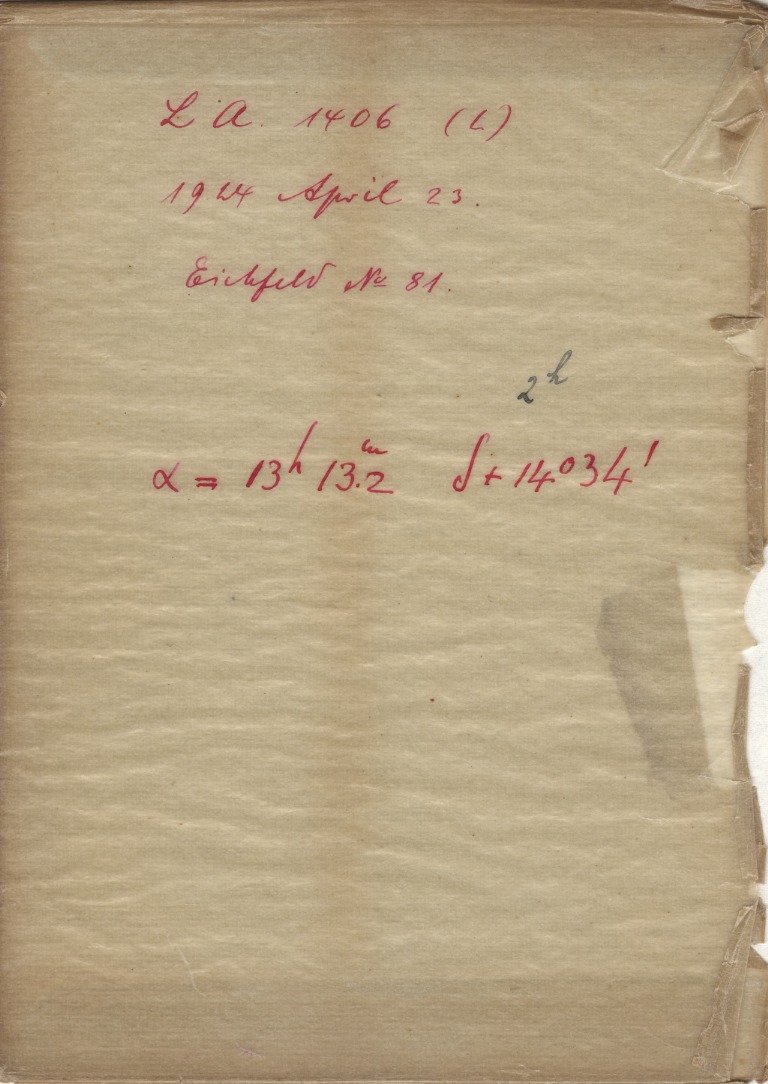 L A. 1406 (L)
1924 April 23.
Eichfeld No 81.
2ʰ
α = 13ʰ 13.2ᵐ δ + 14°34'